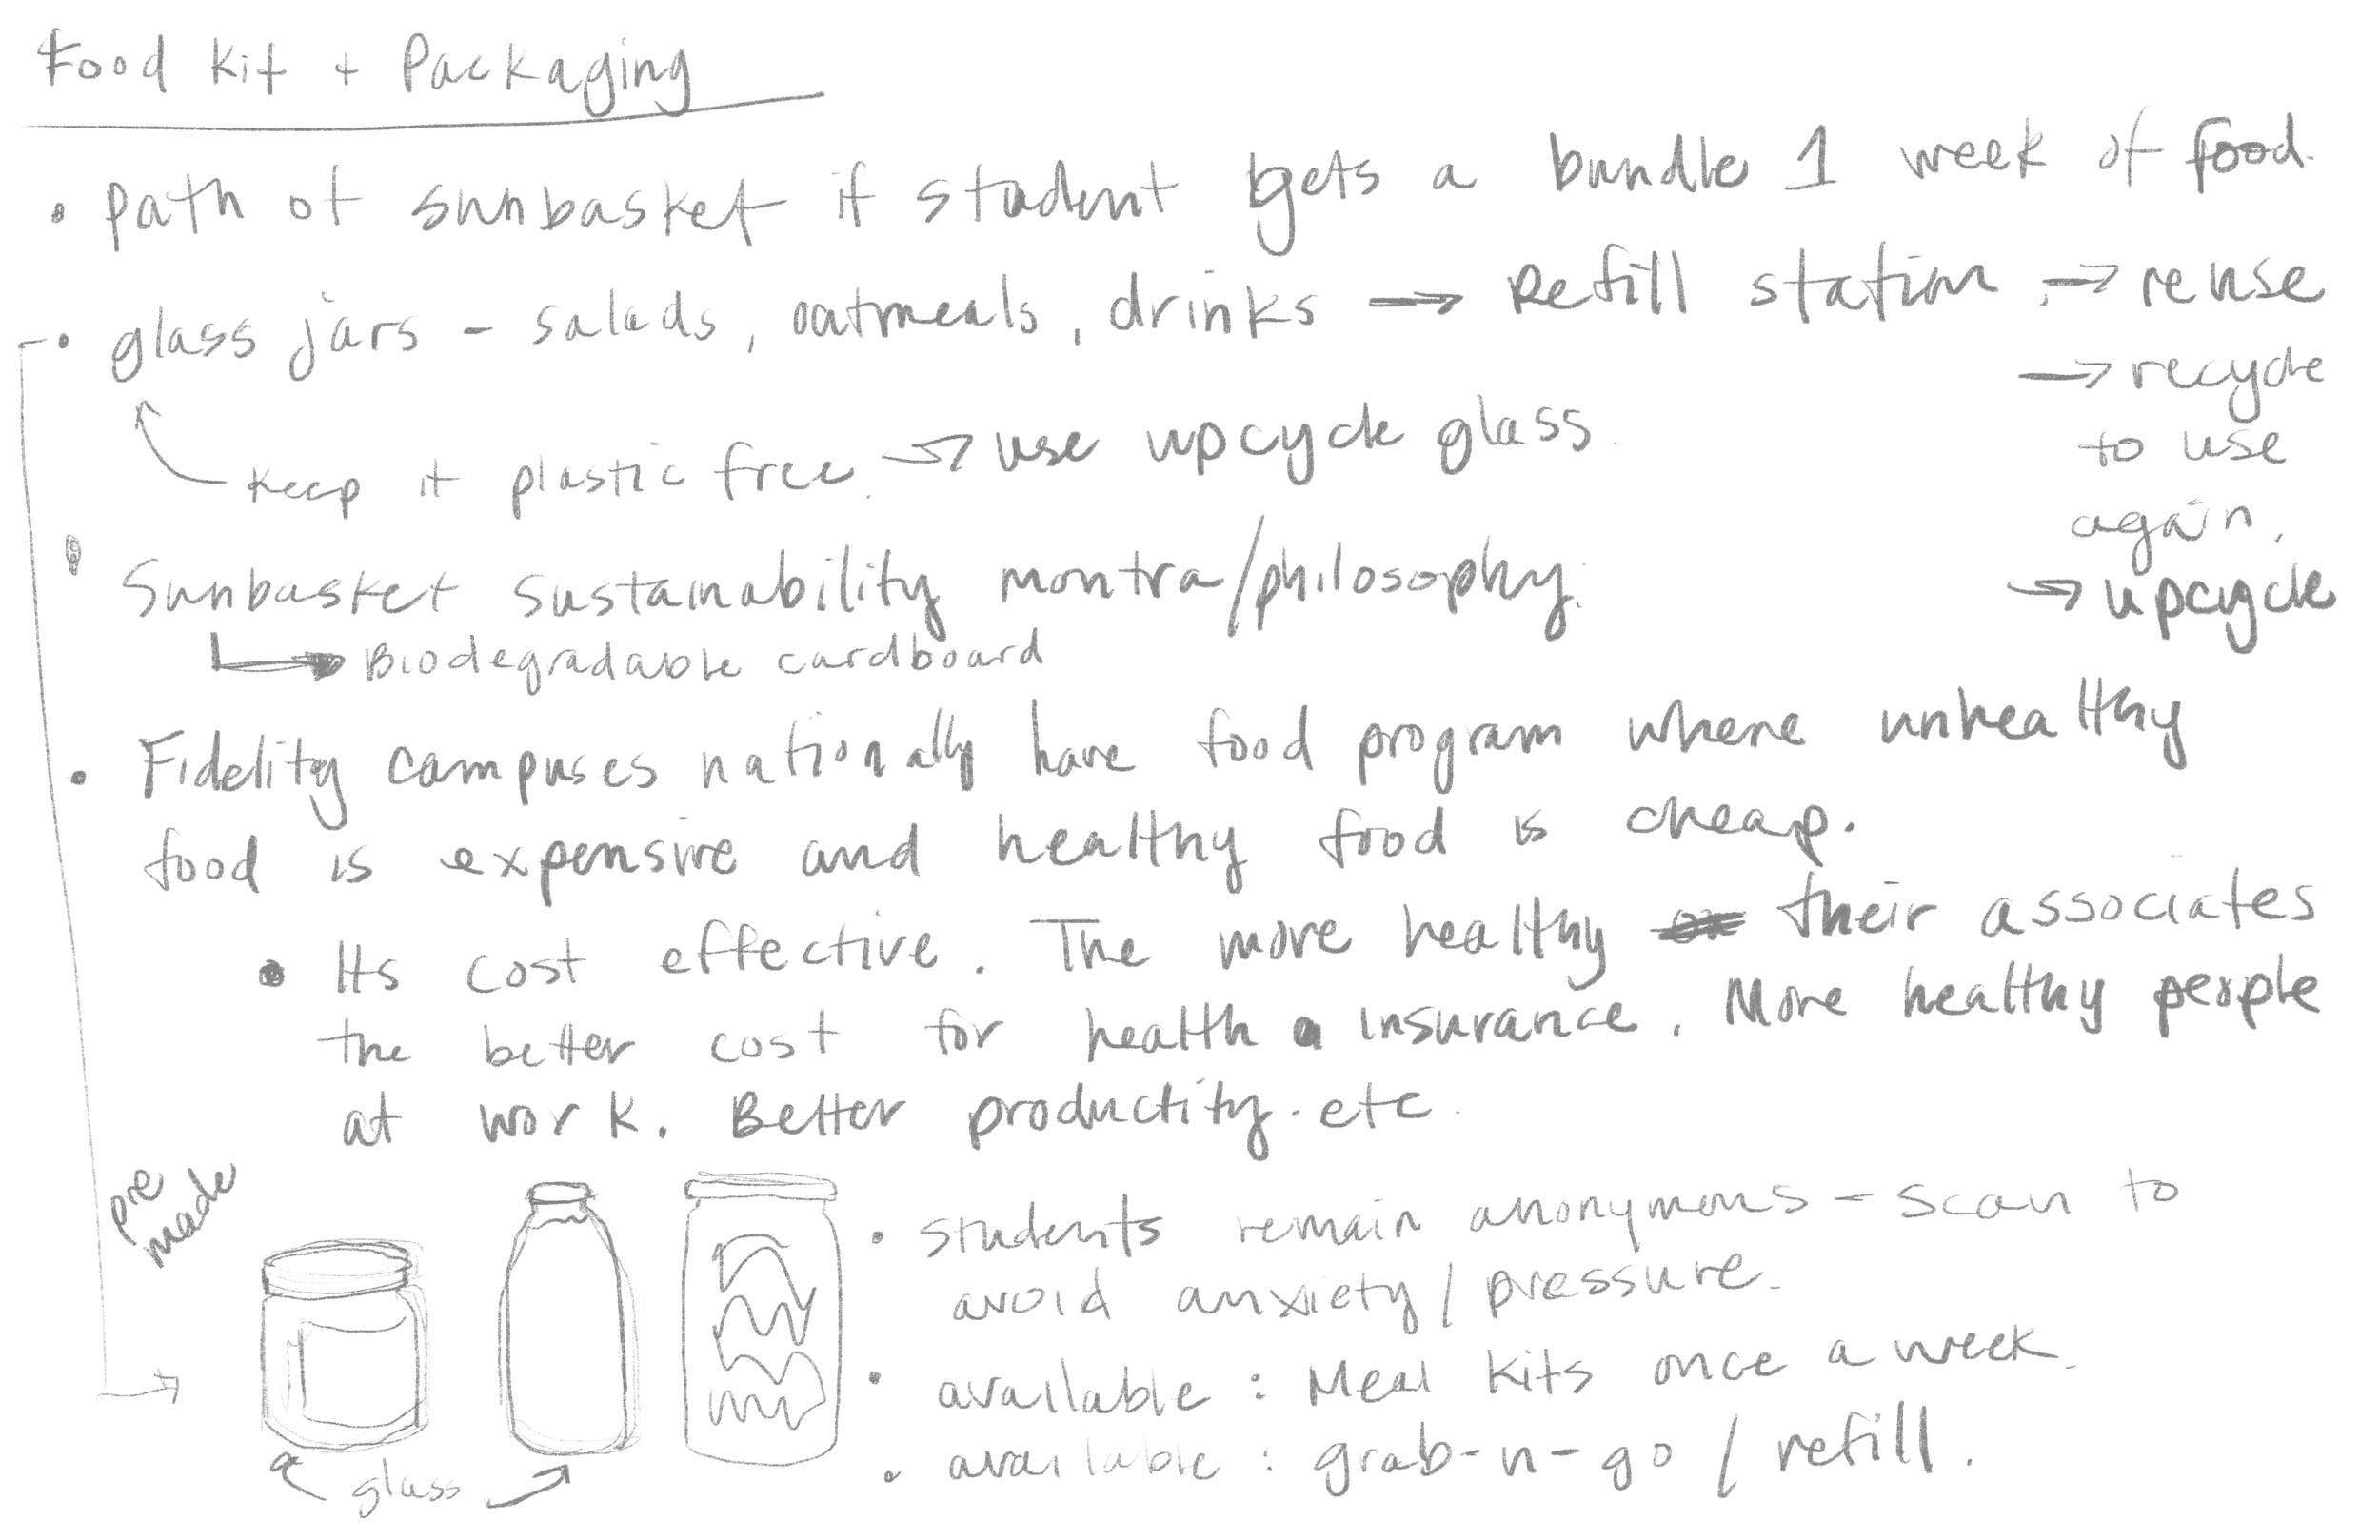 Food Kit + Packaging
• path of sunbasket if student gets a bundle 1 week of food.
• glass jars - salads, oatmeals, drinks → Refill station → reuse
→ recycle
to use
again.
→ upcycle
Keep it plastic free. → use upcycle glass.
• Sunbasket sustainability montra/philosophy.
→ Biodegradable cardboard
• Fidelity campuses nationally have food program where unhealthy
food is expensive and healthy food is cheap.
• Its cost effective. The more healthy their associates
the better cost for health insurance. More healthy people
at work. Better productity. etc.
pre
made
glass
• students remain anonymous - scan to
avoid anxiety / pressure.
• available : Meal kits once a week.
• available : grab-n-go / refill.